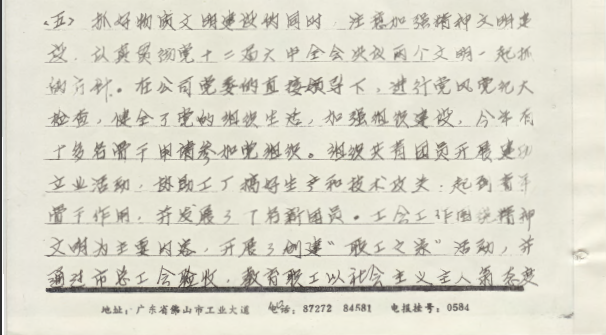 <五> 抓好物质文明建设的同时，注意加强精神文明建
设，认真贯彻党十二届六中全会决议两个文明一起抓
的方针。在公司党委的直接领导下，进行党风党纪大
检查，健全了党的组织生活，加强组织建设，今年有
十多名骨干申请参加党组织。组织共青团员开展建功
立业活动，协助工厂搞好生产和技术攻关，起到青年
骨干作用，并发展了 名新团员。工会工作围绕精神
文明为主要内容，开展了创建“职工之家”活动，并
通过市总工会验收，教育职工以社会主义主人翁态度
地址：广东省佛山市工业大道 电话：87272 84581 电报挂号：0584